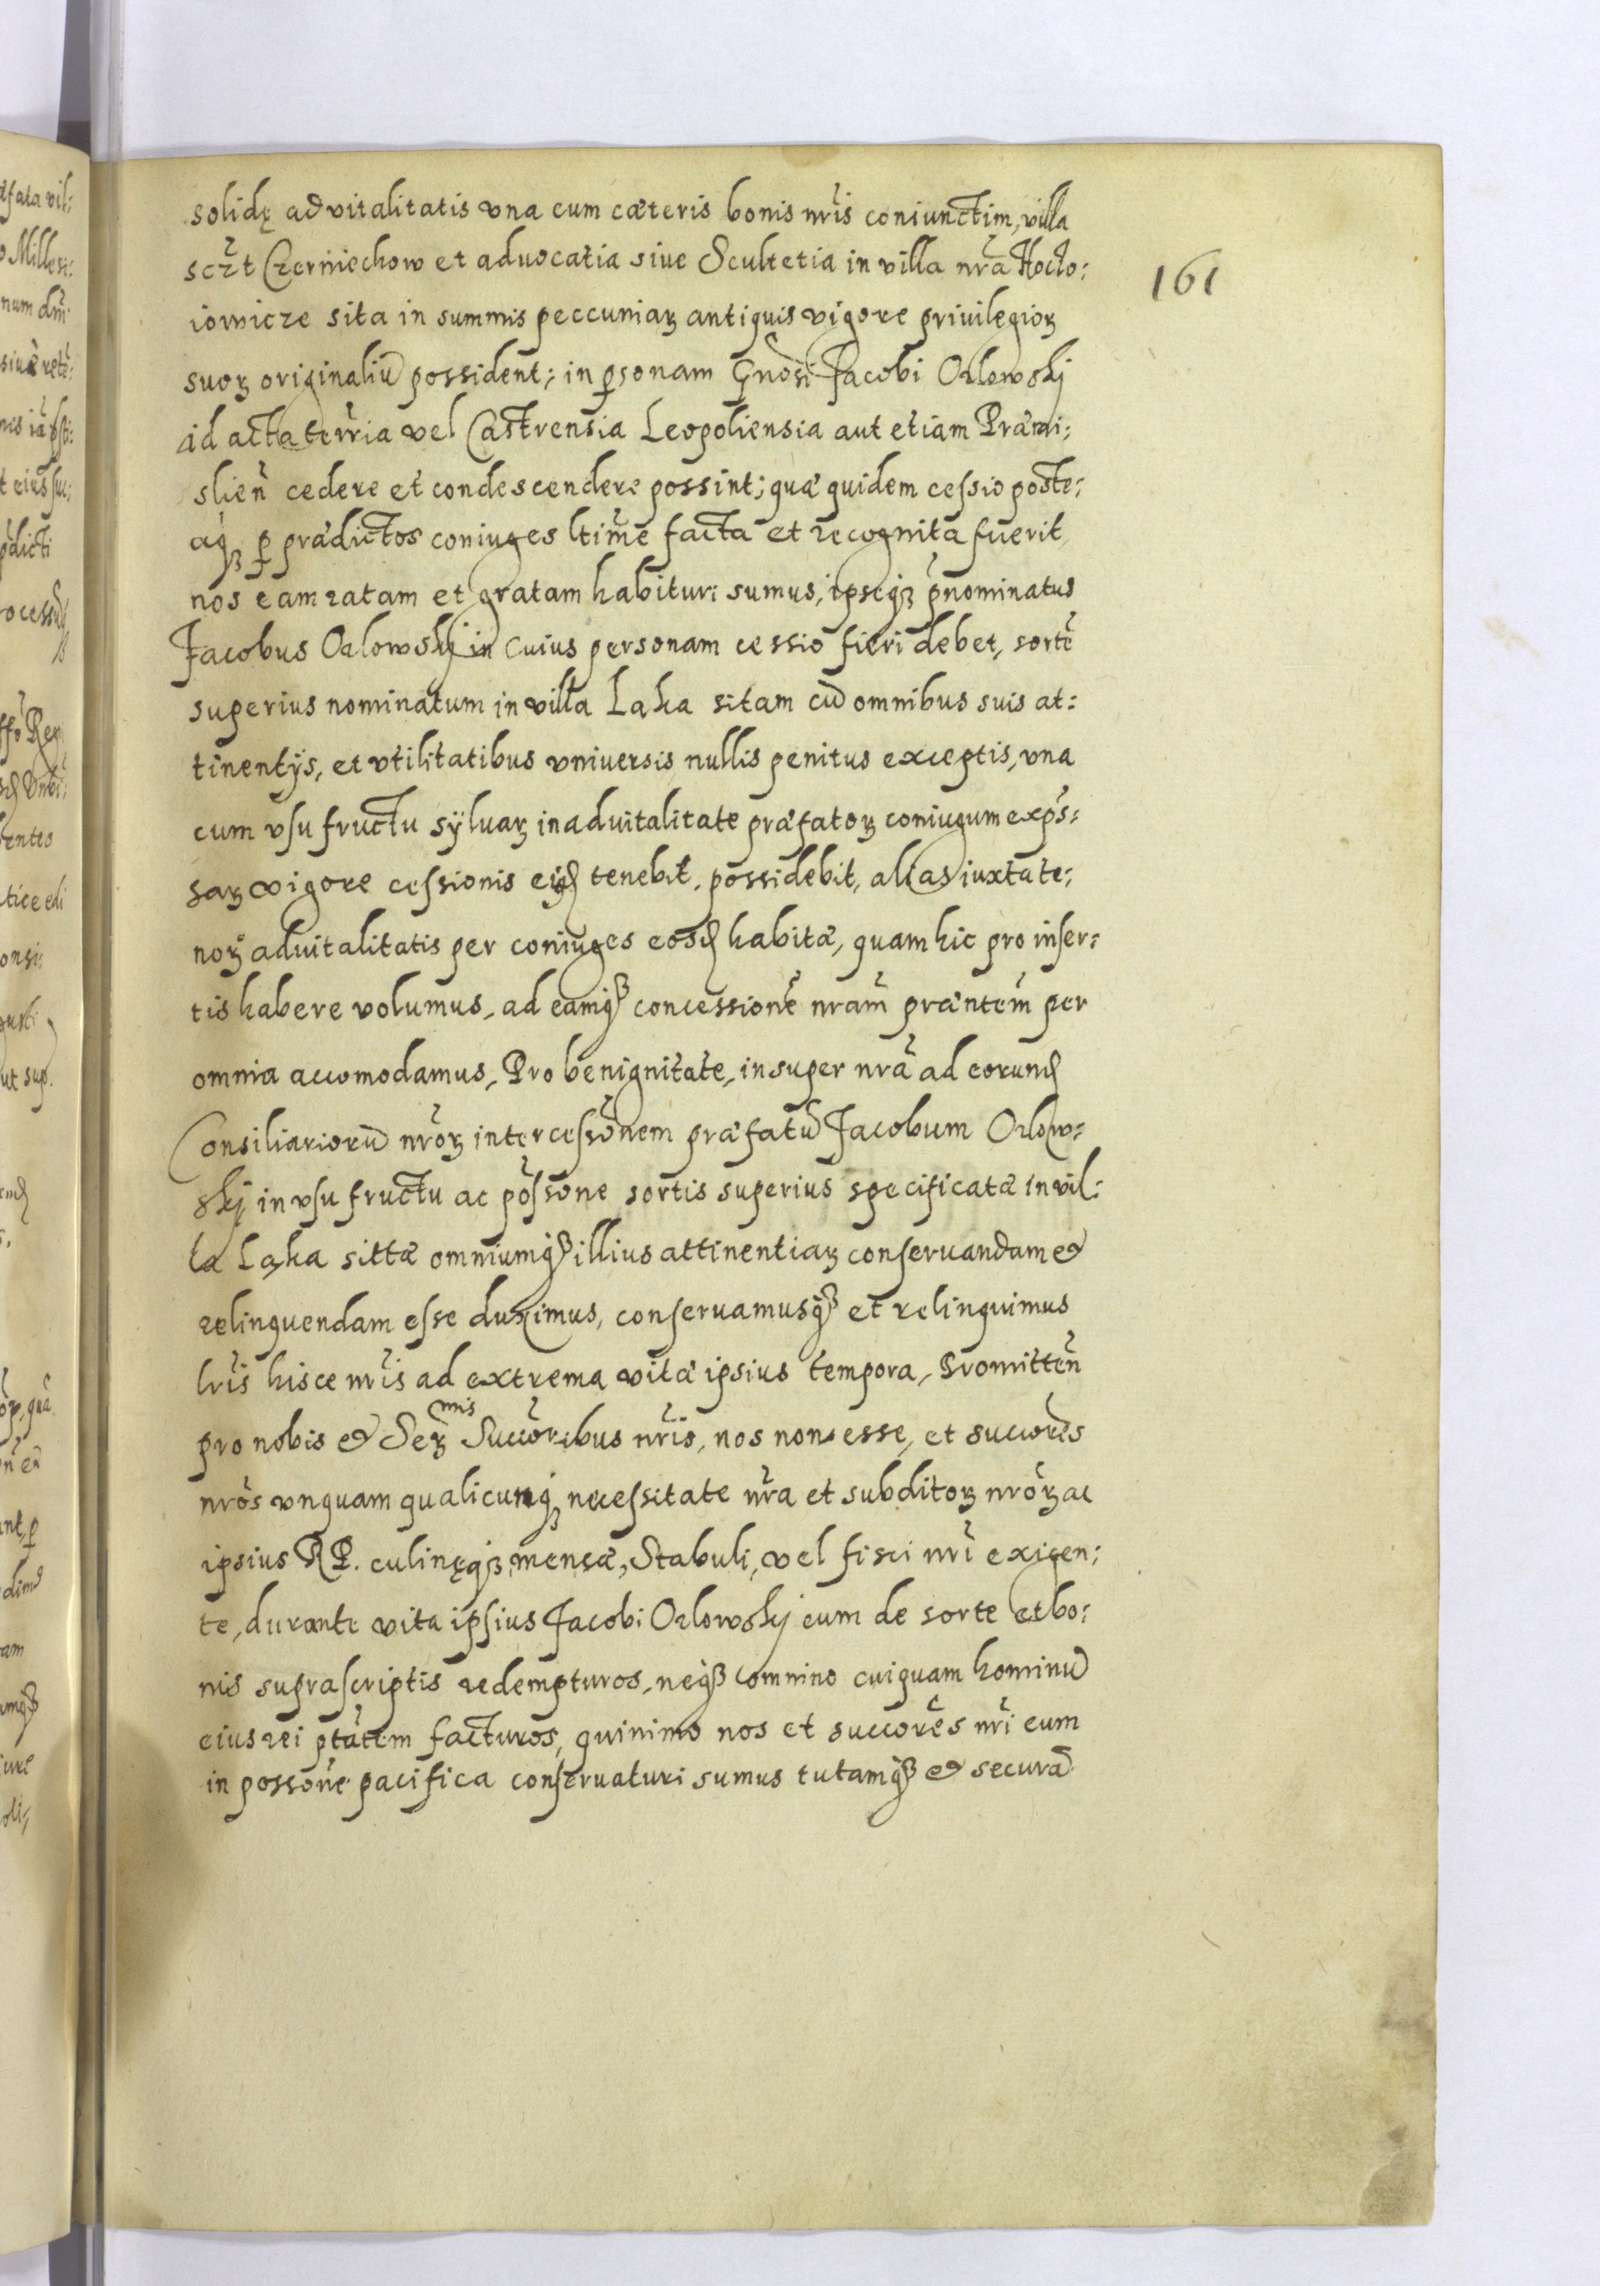 solidę advitalitatis vna cum cæteris bonis nr̃is coniunctim, villa
scz̃t Czerniechow et aduocatia siue Scultetia in villa nr̃a Hoclo:
161
iowicze sita in summis peccuniaꝝ antiquis vigore priuilegioꝝ
suoꝝ originaliũ possident; in ꝑsonam Gnõsi Jacobi Orlowskj
ad acta terr̃ia vel Castrensia Leopoliensia aut etiam Præmi;
slien̄ cedere et condescendere possint; quæ quidem cessio poste;
aqꝫ ꝑ prædictos coniuges ltim̃e facta et recognita fuerit,
nos eam ratam et gratam habituri sumus, ipseqꝫ p̃nominatus
Jacobus Orlowskj in cuius personam cessio fieri debet, sortẽ
superius nominatum in villa Laka sitam cũ omnibus suis at:
tinentijs, et vtilitatibus vniuersis nullis penitus exceptis, vna
cum vsu fructu sÿluaꝝ in aduitalitate præfatoꝝ coniugum exp̃s:
saꝝ vigore cessionis eiꝰd tenebit, possidebit, alias iuxta te;
noꝝ aduitalitatis per coniuges eosd habitæ, quam hic pro inser:
tis habere volumus, ad eamqꝫ concessionẽ nram̃ præntem̃ per
omnia accomodamus, Pro benignitate, insuper nrã ad eorund
Consiliariorũ nrõꝝ intercessõnem præfatũ Jacobum Orlow:
skj in vsu fructu ac põssone sortis superius specificatæ in vil:
la Laka sittæ omniumqꝫ illius attinentiaꝝ conseruandam et
relinquendam esse duximus, conseruamusqꝫ et relinquimus
lr̃is hisce nr̃is ad extrema vitæ ipsius tempora, Promitten̄
pro nobis et Seꝝmis Succõribus nr̃is, nos non esse, et succorẽs
nrõs vnquam qualicunqꝫ necessitate nr̃a et subditoꝝ nrõꝝ ac
ipsius RP. culinęqꝫ, mensæ, Stabuli, vel fisci nr̃i exigen;
te, durante vita ipsius Jacobi Orlowskj eum de sorte et bo:
nis suprascriptis redempturos, neqꝫ omnino cuiquam hominũ
eius rei ptãtem facturos, quinimo nos et succorẽs nr̃i eum
in possonẽ pacifica conseruaturi sumus tutamqꝫ et securã